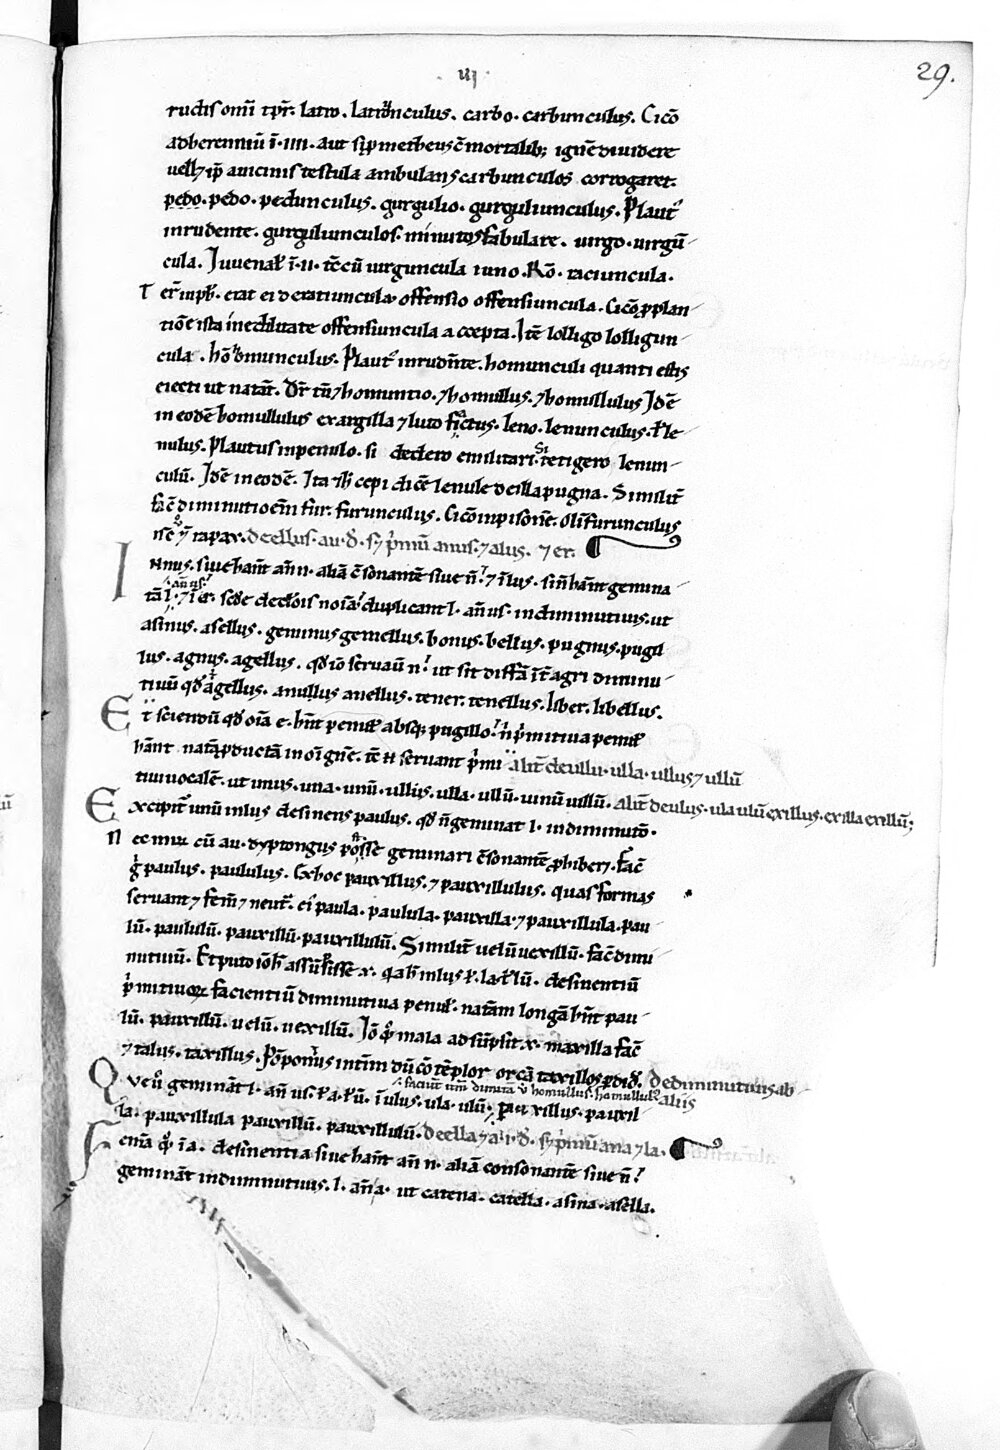 ·iij·
29.
rudis omĩ tpr̃. latro. latrũnculus. carbo. carbunculus. Cicõ
adherenniũ ĩ·iiii·aut si p̃metheus cẽ mortalib; ignẽ diuidere
uell&; ip̃ auicinis testula ambulans carbunculos corrogaret.
pedo. pedo. pedunculus. gurgulio. gurguliunculus. Plaut᾽
inrudente. gurguliunculos. minutos fabulare. uirgo. uirgũ-
cula. Iuuenał ĩ·ii· tẽ cũ uirguncula iuno. Rõ. raciuncula.
Ter̃ inpħ. erat ei de ratiuncula. offensio offensiuncula. Cicõ p̱plan-
tiõe ista inediluitate offensiuncula accepta. Itẽ lolligo lolligun-
cula. hõ homunculus. Plaut᾽ inrudẽte. homunculi quanti estis
eiecti ut natãt. Dr̃ tñ ⁊ homuntio. ⁊ homullus. ⁊ homullulus Idẽ
in eodẽ homullulus ex argilla ⁊ luto fictus. leno. lenunculus. ł le-
nulus. Plautus inpenulo. si dedero emilitari. Si tetigero lenun-
culũ. Idẽ in eodẽ. Ita cepi dicẽ lenule de illa pugna. Similit̃
fac̃ diminutioẽm fur. furunculus. Cicõ inpisonẽ. Olĩ furunculus
nẽc ũ rapax. de ellus. au. đ. sỹ p᾽miũ anus. ⁊ alus. ⁊ er.
Inus. siue hãnt añ n. aliã cõsonantẽ siue ñ. ⁊ ĩlus. siñ hãnt gemina-
añ us.
tã l. ⁊ ĩ er. secđe declõis noĩa. duplicant l. añ us. in diminutiuis. ut
asinus. asellus. geminus gemellus. bonus. bellus. pugnus. pugil-
lus. agnus. agellus. qđ iõ seruauit n. ut sit diffã ĩt agri diminu-
tiuũ qđ agellus. anulus anellus. tener. tenellus. liber. libellus.
Et sciendũ qđ oĩa e. hñt penulł absq; pugillo. ñ p᾽mitiua penulł
hãnt natã p̱ductã in oĩ gñe. tẽ n seruant p᾽mi- aliĩ de ullu. ulla. ullus ⁊ ullũ
tiui uocalẽ. ut unus. una. unũ. ullus. ulla. ullũ. uinũ uillũ. aliĩ de ulus. ula ulũ exillus. exilla exillũ;
Excipit̃ unũ inlus desinens paulus. qđ ñ geminat l. in diminutõ.
Nec mir̃ cũ au. dyptongus põst se geminari cõsonantẽ p̱hibet. Fac̃
g᾽ paulus. paululus. Ex hoc pauxillus. ⁊ pauxillulus. quas formas
seruant ⁊ fem̃ ⁊ neut̃. ei paula. paulula. pauxilla. ⁊ pauxillula. pau-
lũ. paululũ. pauxillũ. pauxillulũ. Similit̃ uelũ uexillũ. fac̃ dimi-
nutiuũ. Et puto iõ ħ assũsisse x. qa ħ inlus. ł. la. ł lũ. desinentiũ
p᾽mitiuoꝝ facientiũ diminutiua penuł. natãm longã hñt pau-
lũ. pauxillũ. uelũ. uexillũ. Iõ q᾽ mala adsũpsit x. maxilla fac̃
⁊ talus. taxillus. Põponius intĩm dũ cõtẽplor orcã taxillos p̱didi. De diminutiuis ab-
faciunt tm̃ diminutã ũ homullus. homullul᾽ aliis
Que ũ geminãt l. añ us. ł a. ł ũ. ĩ ulus. ula. ulũ. Pauxillus. pauxil-
la. pauxillula pauxillũ. pauxillulũ. de ella ⁊ ali. đ. sỹ p᾽miũ ana ⁊ la.
Femã q᾽ ĩ a. desinentia siue hãnt añ n. aliã consonantẽ siue ñ.
geminãt in diminutiuis. l. añ a. ut catena. catella. asina. asella.